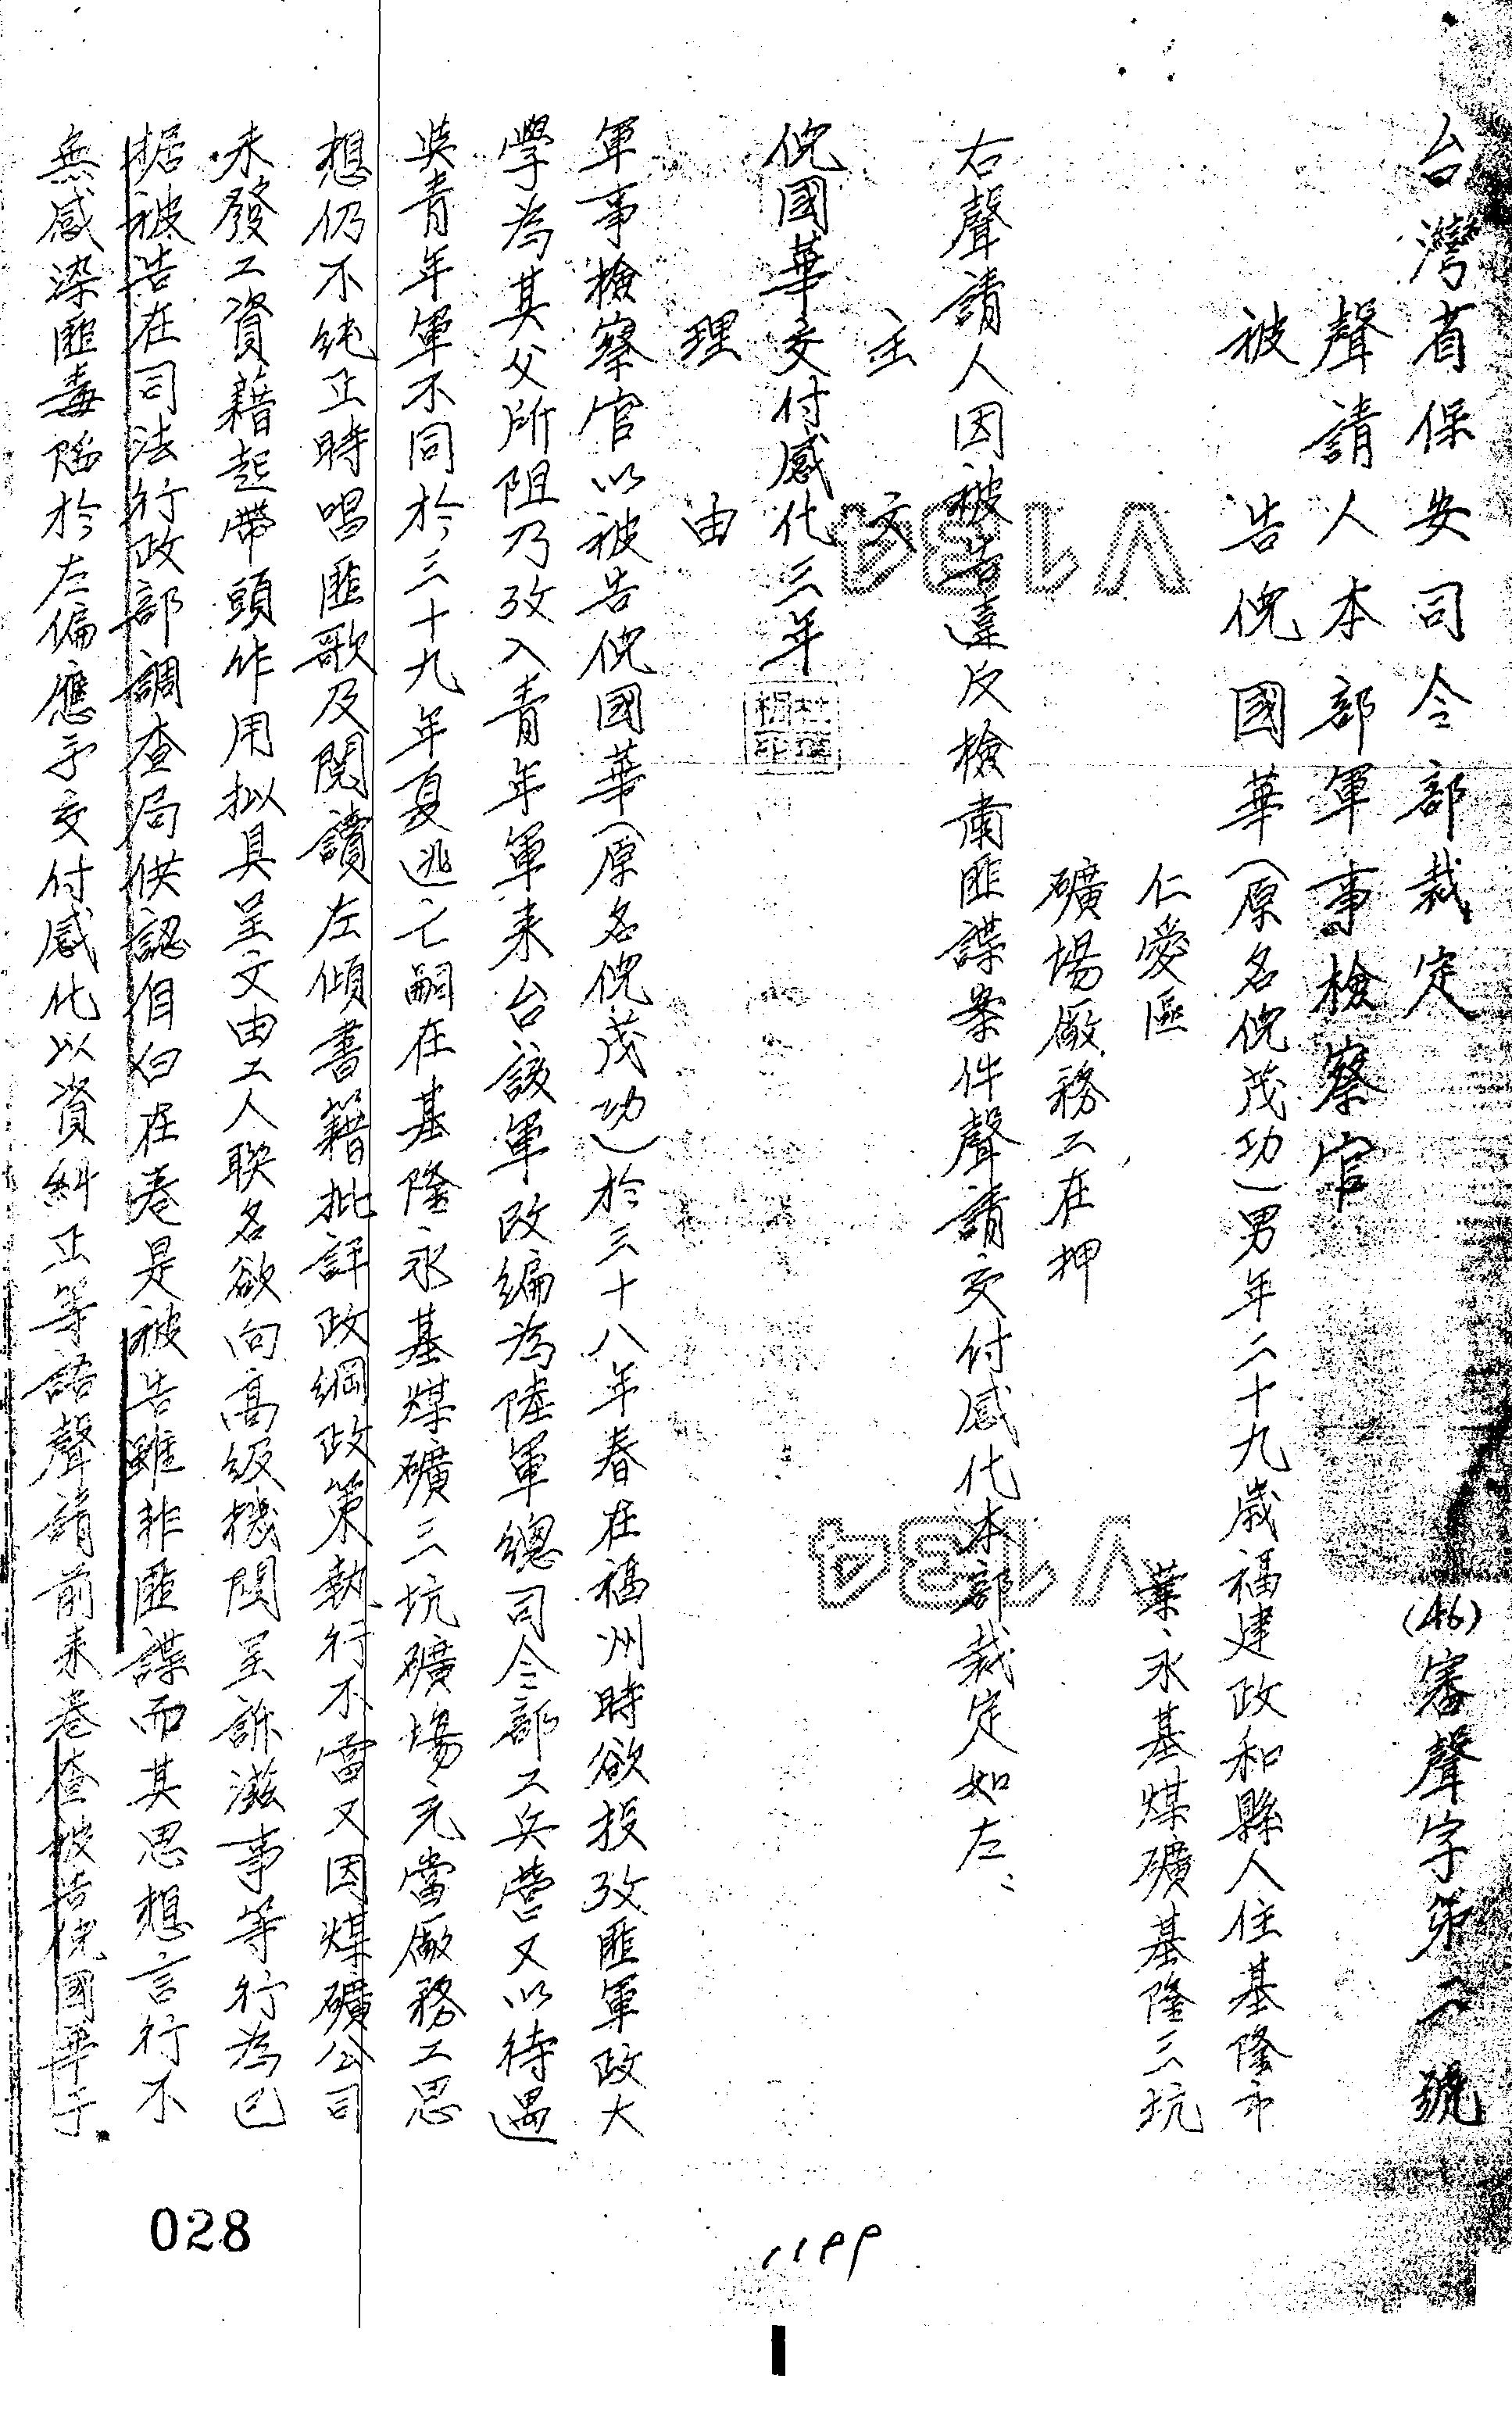 台灣省保安司令部裁定 (46)審聲字第 號
聲請人本部軍事檢察官
被告倪國華(原名倪茂功)男年二十九歲福建政和縣人住基隆市
仁愛區 業永基煤礦基隆三坑
礦場廠務工在押
右聲請人因被告違反檢肅匪諜案件聲請交付感化本部裁定如左:
主文
倪國華交付感化三年
理由
軍事檢察官以被告倪國華(原名倪茂功)於三十八年春在福州時欲投攷匪軍政大
學為其父所阻乃攷入青年軍來台該軍改編為陸軍總司令部工兵營又以待遇
與青年軍不同於三十九年夏逃亡嗣在基隆永基煤礦三坑礦場充當廠務工思
想仍不純正時唱匪歌及閱讀左傾書籍批評政綱政策執行不當又因煤礦公司
未發工資藉起帶頭作用拟具呈文由工人聯名欲向高級機関呈訴滋事等行為已
据被告在司法行政部調查局供認自白在卷是被告雖非匪諜而其思想言行不
無感染匪毒陷於左偏應予交付感化以資糾正等語聲請前來卷查被告倪國華于
V134
V134
028
1199